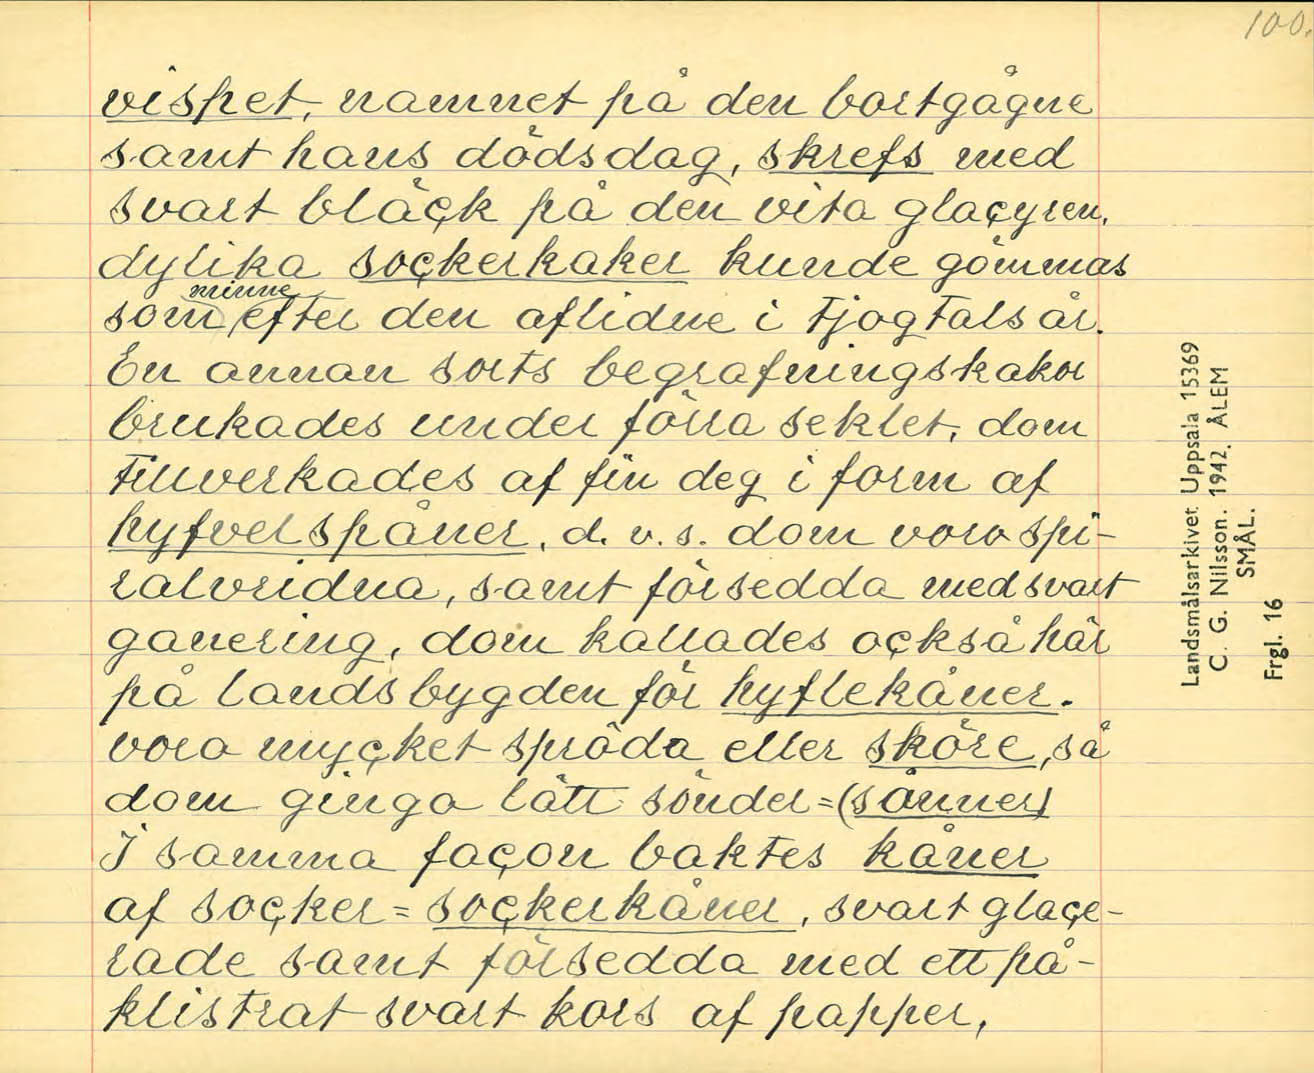 100.
vispet, namnet på den bortgågne
samt hans dödsdag, skrefs med
svart bläçk på den vita glaçyren.
dylika soçkerkaker kunde gömmas
som minne efter den aflidne i tjogtals år.
En annan sorts begrafningskakor
brukades under förra seklet, dom
tillverkades af fin deg i form af
hyfvelspåner, d. v. s. dom voro spi-
ralvridna, samt försedda med svart
ganering, dom kallades oçkså här
på landsbygden för hyflekåner.
voro myçket spröda eller sköre, så
dom gingo lätt sönder=(sånner)
I samma façon baktes kåner
af soçker=soçkerkåner, svart glaçe-
rade samt försedda med ett på-
klistrat svart kors af papper,
Landsmålsarkivet Uppsala 15369
C. G. Nilsson. 1942. ÅLEM
SMÅL.
Frgl. 16